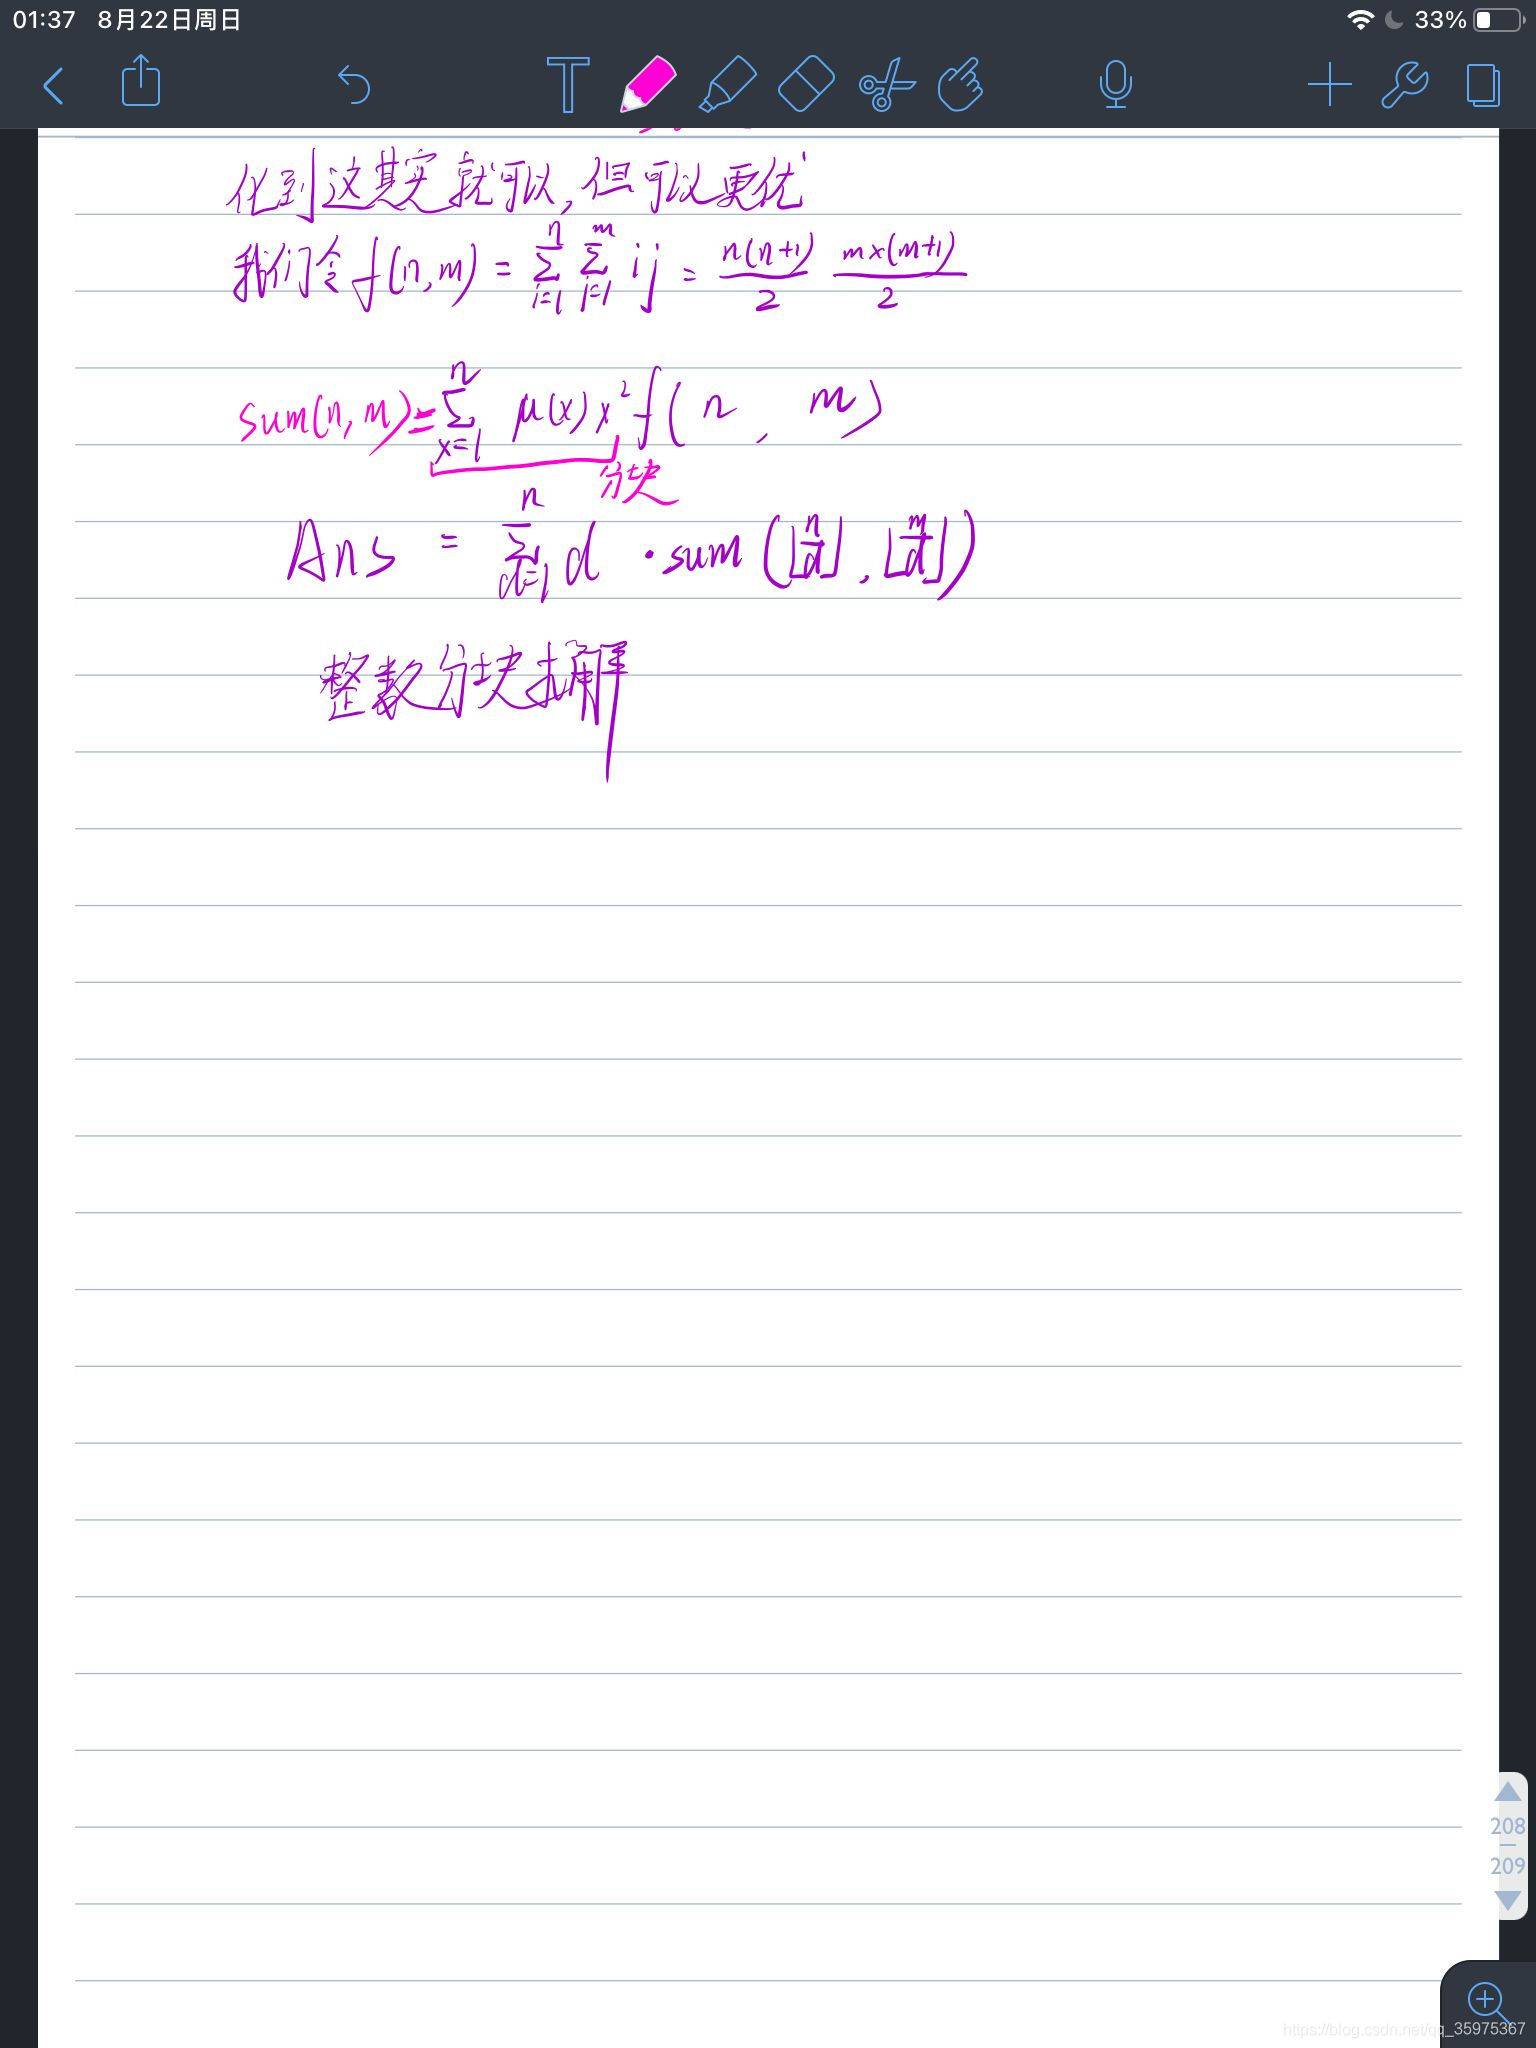 01:37 8月22日周日 33%
化到这其实就可以,但可以更优
我们令 f(n,m) = \sum_{i=1}^{n} \sum_{j=1}^{m} ij = \frac{n(n+1)}{2} \frac{m×(m+1)}{2}
sum(n,m) = \sum_{x=1}^{n} μ(x) x² f(n, m)
分块
Ans = \sum_{d=1}^{n} d · sum(⌊\frac{n}{d}⌋, ⌊\frac{m}{d}⌋)
整数分块求解
208
209
https://blog.csdn.net/qq_35975367